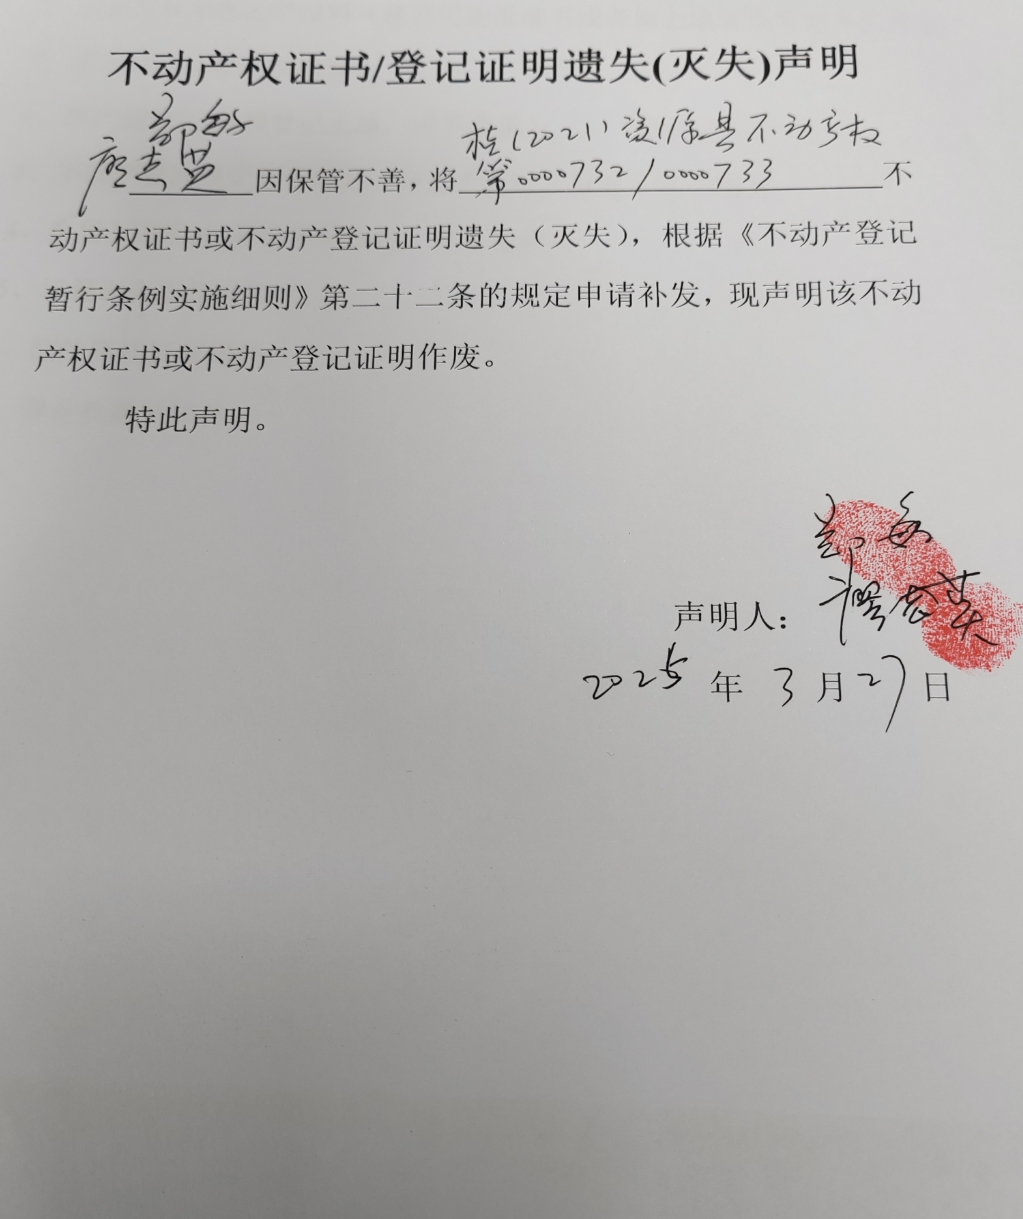 不动产权证书/登记证明遗失(灭失)声明
郑敏
廖志英因保管不善，将桂(2021)资源县不动产权第0000732/0000733不
动产权证书或不动产登记证明遗失（灭失），根据《不动产登记
暂行条例实施细则》第二十二条的规定申请补发，现声明该不动
产权证书或不动产登记证明作废。
特此声明。
郑敏
声明人：
2025年3月27日